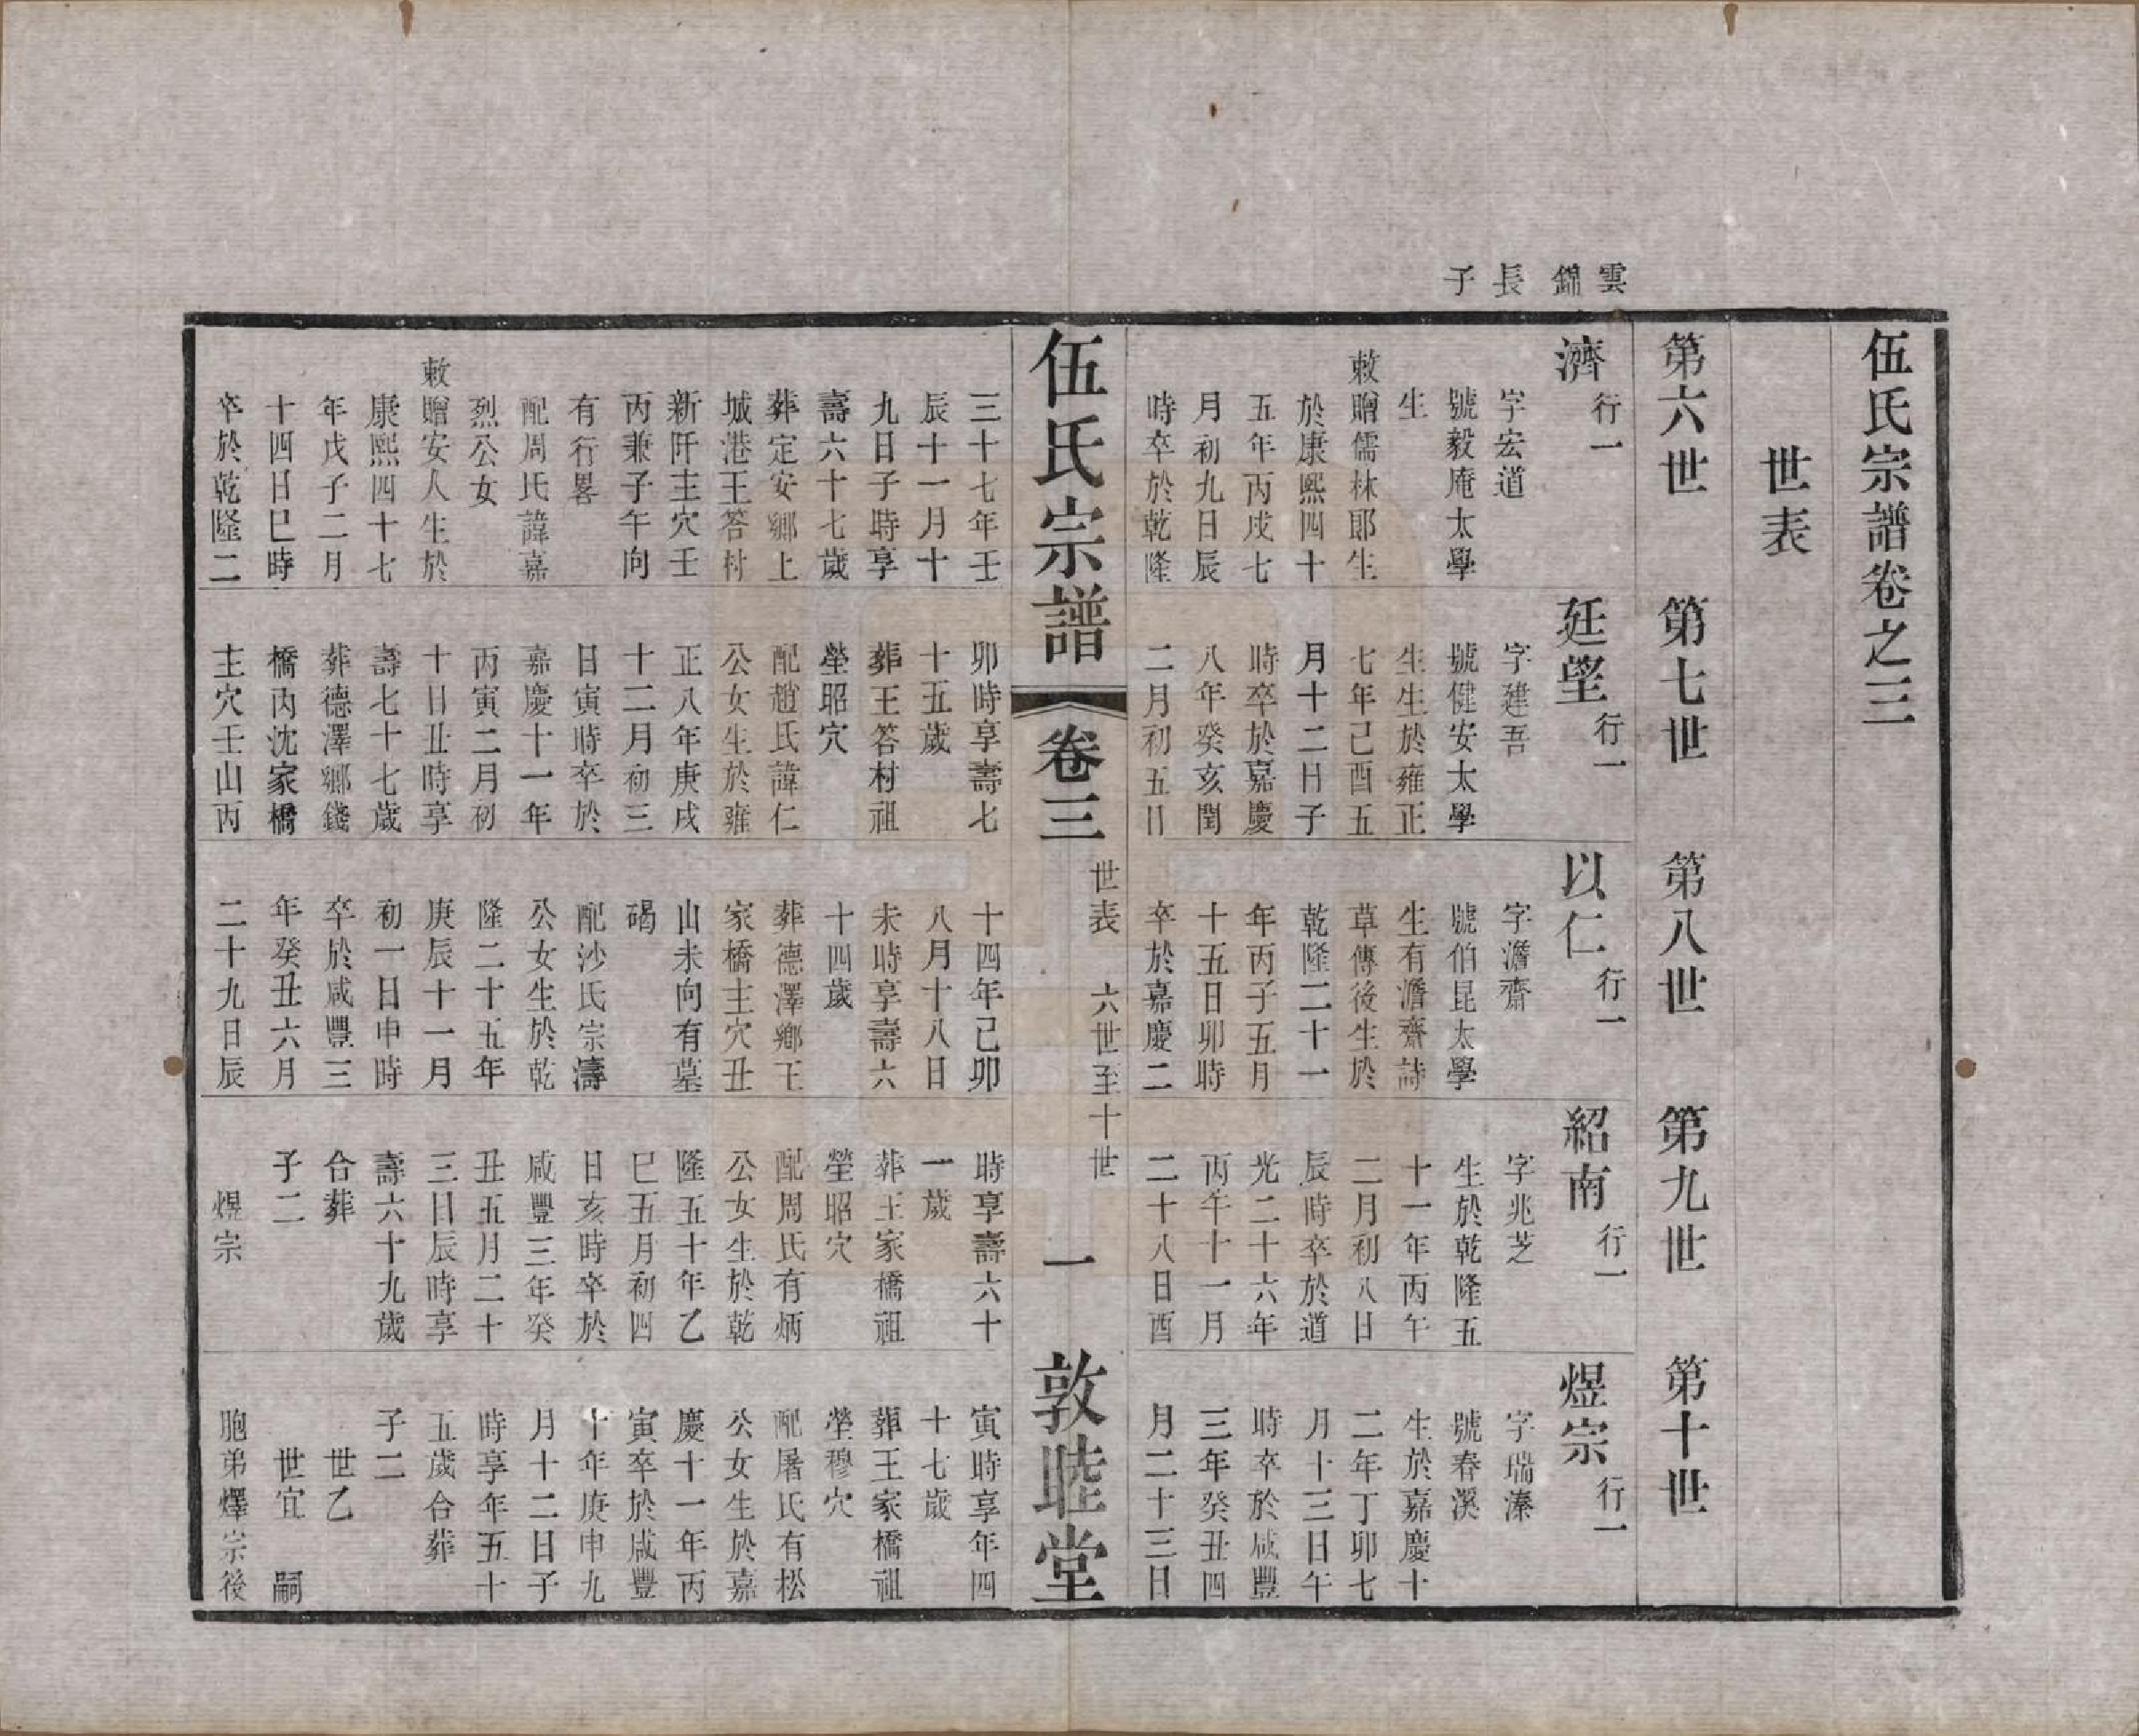 伍氏宗譜卷之三
世表
第六世
第七世
第八世
第九世
第十世
雲錦長子
濟 行一
字宏道
號毅庵太學
生
敕贈儒林郎生
於康熙四十
五年丙戌七
月初九日辰
時卒於乾隆
三十七年壬
辰十一月十
九日子時享
壽六十七歲
葬定安鄉上
城港王答村
新阡主穴壬
丙兼子午向
有行畧
配周氏諱嘉
烈公女
敕贈安人生於
康熙四十七
年戊子二月
十四日巳時
卒於乾隆二
廷望 行一
字建吾
號健安太學
生生於雍正
七年己酉五
月十二日子
時卒於嘉慶
八年癸亥閏
二月初五日
卯時享壽七
十五歲
葬王答村祖
塋昭穴
配趙氏諱仁
公女生於雍
正八年庚戌
十二月初三
日寅時卒於
嘉慶十一年
丙寅二月初
十日丑時享
壽七十七歲
葬德澤鄉錢
橋內沈家橋
主穴壬山丙
以仁 行一
字澹齋
號伯昆太學
生有澹齋詩
草傳後生於
乾隆二十一
年丙子五月
十五日卯時
卒於嘉慶二
十四年己卯
八月十八日
未時享壽六
十四歲
葬德澤鄉王
家橋主穴丑
山未向有墓
碣
配沙氏宗濤
公女生於乾
隆二十五年
庚辰十一月
初一日申時
卒於咸豐三
年癸丑六月
二十九日辰
紹南 行一
字兆芝
生於乾隆五
十一年丙午
二月初八日
辰時卒於道
光二十六年
丙午十一月
二十八日酉
時享壽六十
一歲
葬王家橋祖
塋昭穴
配周氏有炳
公女生於乾
隆五十年乙
巳五月初四
日亥時卒於
咸豐三年癸
丑五月二十
三日辰時享
壽六十九歲
合葬
子二
煜宗
煜宗 行一
字瑞溱
號春溪
生於嘉慶十
二年丁卯七
月十三日午
時卒於咸豐
三年癸丑四
月二十三日
寅時享年四
十七歲
葬王家橋祖
塋穆穴
配屠氏有松
公女生於嘉
慶十一年丙
寅卒於咸豐
十年庚申九
月十二日子
時享年五十
五歲合葬
子二
世乙
世宜 嗣
胞弟燡宗後
伍氏宗譜 卷三 世表 六世至十世 一 敦睦堂